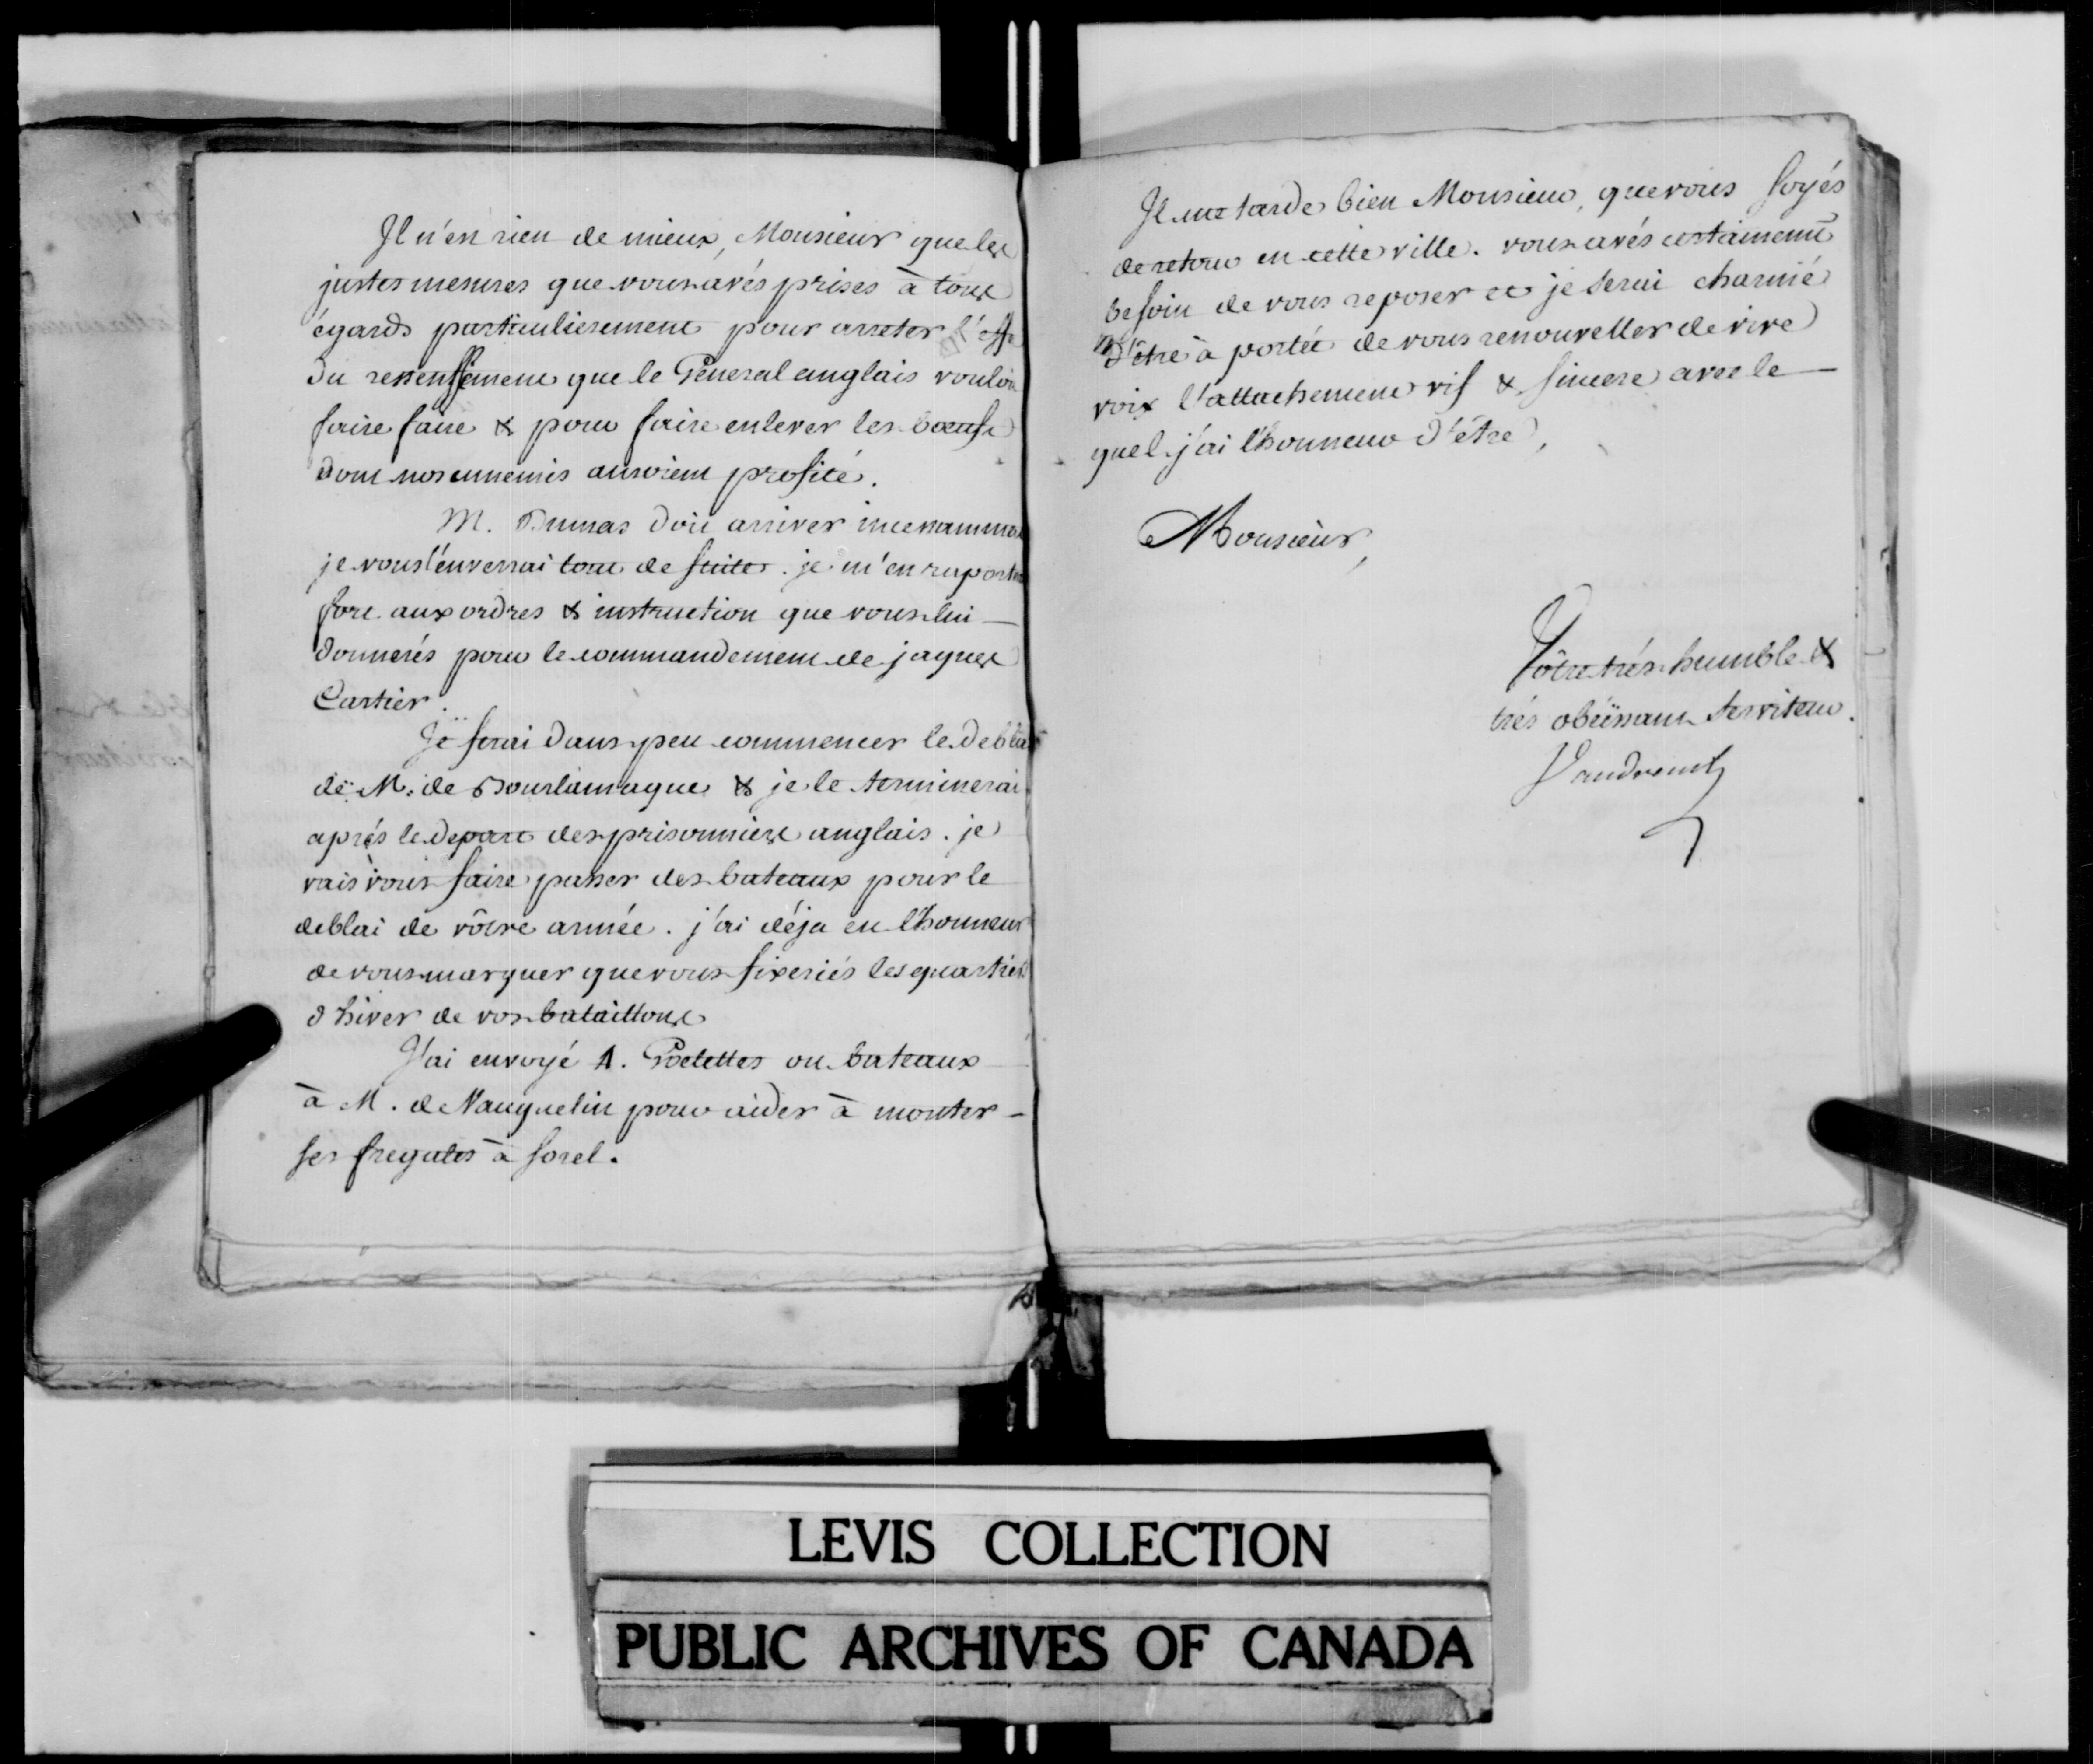 Il n'est rien de mieux, Monsieur que les
justes mesures que vous avés prises à tous
égards particulierement pour arreter l'effe
du recensement que le General anglais vouloi
faire faire & pour faire enlever les boeufs
dont nos ennemis auroient profité.
M. Dumas doit arriver incessamme
je vous l'enverrai tout de suite. je m'en raporte
fort aux ordres & instruction que vous lui
donnerés pour le commandement de jaques
Cartier.
Je ferai dans peu commencer le deblai
de M. de Bourlamaque & je le terminerai
aprés le depart des prisonniers anglais. je
vais vous faire passer des bateaux pour le
deblai de vôtre armée. j'ai déja eu l'honneur
de vous marquer que vous fixeriés les quartiers
d'hiver de vos bataillons
J'ai envoyé 4. Goelettes ou bateaux
à M. de Vauquelin pour aider à monter
ses fregates à sorel.
Il me tarde bien Monsieur, que vous soyés
de retour en cette ville. vous avés certainement
besoin de vous reposer et je serai charmé
d'être à portée de vous renouveller de vive
voix l'attachement vif & sincere avec le
quel j'ai l'honneur d'être,
Monsieur,
Vôtre trés humble &
trés obéïssant serviteur.
Vaudreuil
LEVIS COLLECTION
PUBLIC ARCHIVES OF CANADA